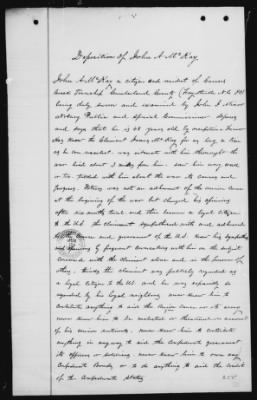 Deposition of John A. McKay.
John A. McKay a citizen and resident of
Township Cumberland County (Fayetteville N.C.
being duly sworn and examined by John
Notary Public and Special Commissioner deposes
and says that he is 48 years old by occupation
has known the claimant McKay for as long a time
as he can recollect was intimate with him throughout the
war lived about 2 miles from him saw him very once
or two talked with him about the war its causes and
progress. Witness was not an adherent of the union cause
at the beginning of the war but changed his opinions
after six months trial and then became a loyal citizen
to the U.S. the claimant sympathized with and adhered
to the cause and government of the U.S. knew his sympathies
and opinions by frequent conversations with him on the subject
conversed with the claimant alone and in the presence of
others, thinks the claimant was publicly regarded as
a loyal citizen to the U.S. and he was especially so
regarded by his loyal neighbors never knew him to
contribute anything to aid the Union cause or its army
never knew him to be molested or threatened on account
of his union sentiments. never knew him to contribute
anything in any way to aid the Confederate government
its officers or soldiers never knew him to own any
Confederate Bonds or to do anything to aid the credit
of the Confederate States